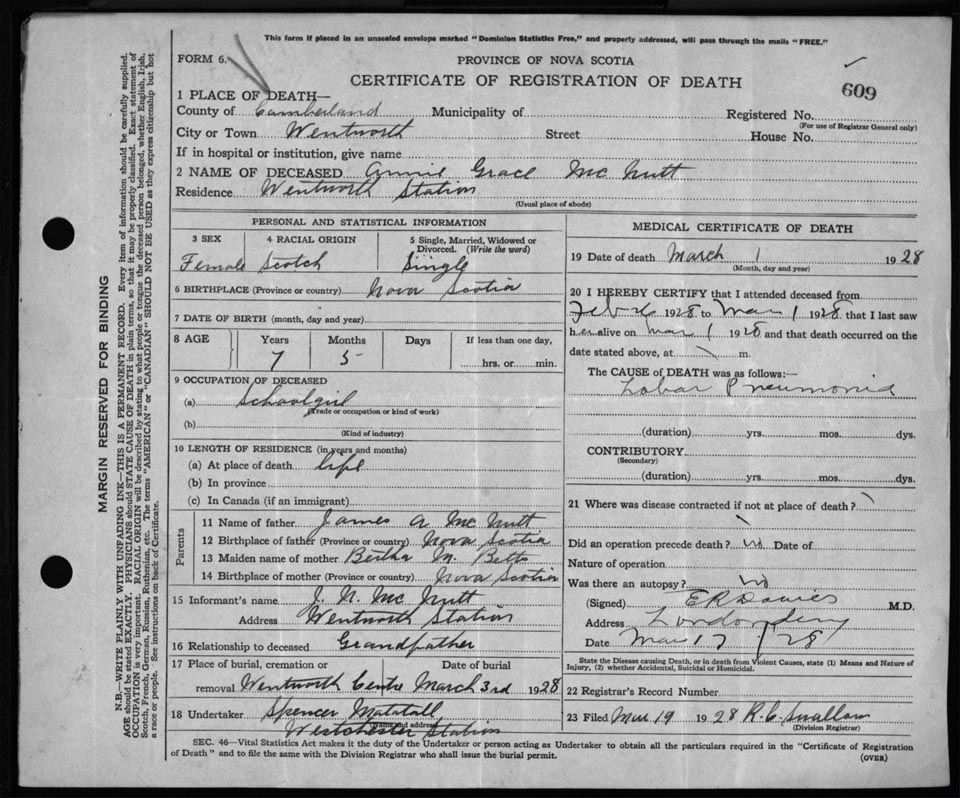 This form if placed in an unsealed envelope marked "Dominion Statistics Free," and properly addressed, will pass through the mails "FREE."
FORM 6.
PROVINCE OF NOVA SCOTIA
CERTIFICATE OF REGISTRATION OF DEATH
609
1 PLACE OF DEATH—
County of Cumberland Municipality of Registered No.
(For use of Registrar General only)
City or Town Wentworth Street House No.
If in hospital or institution, give name
2 NAME OF DECEASED Annie Grace Mc Nutt
Residence Wentworth Station
(Usual place of abode)
PERSONAL AND STATISTICAL INFORMATION
3 SEX 4 RACIAL ORIGIN 5 Single, Married, Widowed or Divorced. (Write the word)
Female Scotch Single
6 BIRTHPLACE (Province or country) Nova Scotia
7 DATE OF BIRTH (month, day and year)
8 AGE Years Months Days If less than one day,
7 5 hrs. or min.
9 OCCUPATION OF DECEASED
(a) Schoolgirl
(Trade or occupation or kind of work)
(b)
(Kind of industry)
10 LENGTH OF RESIDENCE (in years and months)
(a) At place of death life
(b) In province
(c) In Canada (if an immigrant)
Parents
11 Name of father James A Mc Nutt
12 Birthplace of father (Province or country) Nova Scotia
13 Maiden name of mother Bertha M. Betts
14 Birthplace of mother (Province or country) Nova Scotia
15 Informant's name J. N. Mc Nutt
Address Wentworth Station
16 Relationship to deceased Grandfather
17 Place of burial, cremation or Date of burial
removal Wentworth Centre March 3rd 1928
18 Undertaker Spencer Matatall
(Name and address)
Westchester Station
MEDICAL CERTIFICATE OF DEATH
19 Date of death March 1 1928
(Month, day and year)
20 I HEREBY CERTIFY that I attended deceased from
Feb 1928 to Mar 1 1928 that I last saw
her alive on Mar 1 1928 and that death occurred on the
date stated above, at m.
The CAUSE of DEATH was as follows:—
Lobar Pneumonia
(duration) yrs. mos. dys.
CONTRIBUTORY
(Secondary)
(duration) yrs. mos. dys.
21 Where was disease contracted if not at place of death?
Did an operation precede death? no Date of
Nature of operation
Was there an autopsy? no
(Signed) E R Davies M.D.
Address Londonderry
Date Mar 17 / 28
State the Disease causing Death, or in death from Violent Causes, state (1) Means and Nature of
Injury, (2) whether Accidental, Suicidal or Homicidal.
22 Registrar's Record Number
23 Filed Mar 19 1928 R. C. Swallow
(Division Registrar)
SEC. 46—Vital Statistics Act makes it the duty of the Undertaker or person acting as Undertaker to obtain all the particulars required in the "Certificate of Registration
of Death" and to file the same with the Division Registrar who shall issue the burial permit.
(OVER)
MARGIN RESERVED FOR BINDING
N.B.—WRITE PLAINLY WITH UNFADING INK—THIS IS A PERMANENT RECORD. Every item of information should be carefully supplied.
AGE should be stated EXACTLY. PHYSICIANS should STATE CAUSE OF DEATH in plain terms, so that it may be properly classified. Exact statement of
OCCUPATION is very important. RACIAL ORIGIN will be described by stating to what people or tongue the deceased person belonged, whether English, Irish,
Scotch, French, German, Russian, Ruthenian, etc. The terms "AMERICAN" or "CANADIAN" SHOULD NOT BE USED as they express citizenship but not
a race or people. See instructions on back of Certificate.